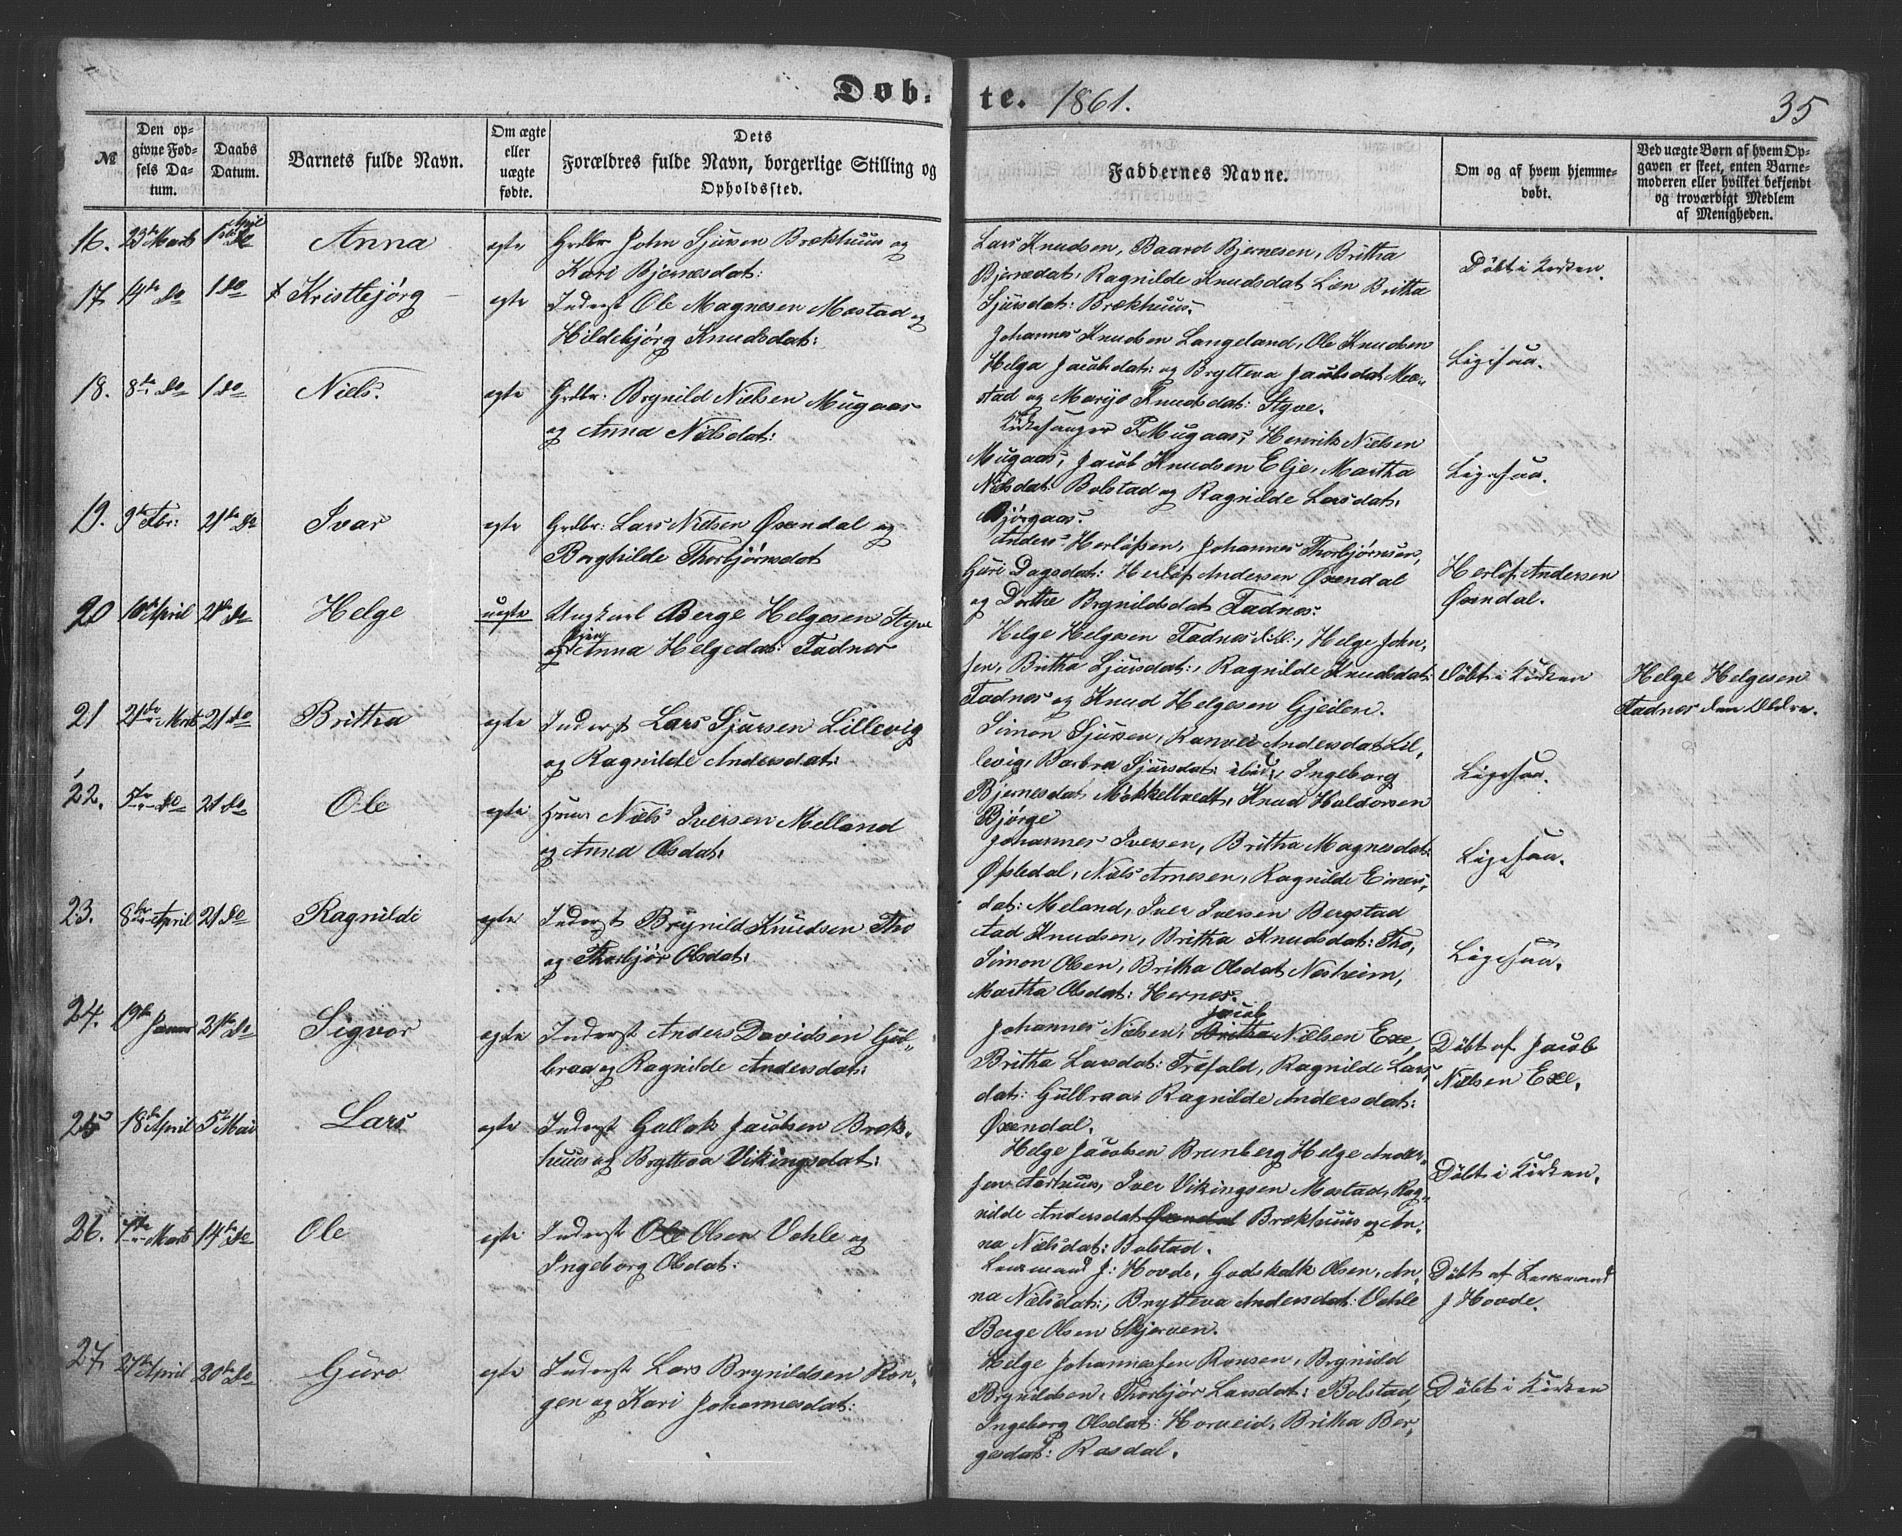 Døb-
te. 1861.
35
№
Den op-
givne Fød-
sels Da-
tum.
Daabs
Datum.
Barnets fulde Navn.
Om ægte
eller
uægte
fødte.
Dets
Forældres fulde Navn, borgerlige Stilling og
Opholdssted.
Faddernes Navne.
Om og af hvem hjemme-
døbt.
Ved uægte Børn af hvem Op-
gaven er skeet, enten Barne-
moderen eller hvilket bekjendt
og troværdigt Medlem
af Menigheden.
16. 23de Marts 1ste April Anna egte Grdbr John Sjursen Brækhuus og
Kari Bjernesdat:
Lars Knudsen, Baard Bjernesen, Britha
Bjernesdat, Ragnilde Knudsdat Lien Britha
Sjursdat: Brækhuus.
Døbt i Kirken.
17. 14de do 1 do Kristlebjørg egte Inderst Ole Magnesen Mostad og
Hildebjørg Knudsdat:
Johannes Knudsen Langeland, Ole Knudsen
Helga Jacobsdat: og Brytteva Jacobsdat Mo-
stad og Marijo Knudsdat: Styve.
Ligesaa.
18. 8de do 1 do Niels. egte Grdbr: Brynild Nielsen Mugaas
og Anna Nielsdat:
Kirkesanger T. Mugaas, Henrik Nielsen
Mugaas, Jacob Knudsen Elje, Martha
Nielsdat: Bolstad og Ragnilde Larsdat:
Bjørgaas.
Ligesaa.
19. 9de Fbr: 21de do Ivar egte Grdbr: Lars Nielsen Øxendal og
Borghilde Thorbjørnsdat
Anders Herlofsen, Johannes Thorbjørnsen,
Guri Dagsdat: Herlof Andersen Øxendal
og Dorthe Brynildsdat Fadnes.
Herlof Andersen
Øxendal.
20 10de April 21de do Helge uegte Ungkarl Berge Helgesen Styve
og Pigen Anna Helgesdat: Fadnes
Helge Helgesen Fadnes, Helge John-
sen, Britha Sjursdat:, Ragnilde Knudsdat:
Fadnes og Knud Helgesen Gjeilen.
Døbt i Kirken
Helge Helgesen
Fadnes den Ældre.
21 21de Marts 21 do Britha egte Inderst Lars Sjursen Lillevig
og Ragnilde Andersdat:
Simon Sjursen, Ranvei Andersdat Lil-
levig, Barbra Sjursdat: ibid, Ingeborg
Bjernesdat, Møkkeltvedt, Knud Haldorsen
Bjørge
Ligesaa.
22. 7de do 21 do Ole egte Huus Niels Iversen Melland
og Anna Olsdat:
Johannes Iversen, Britha Magnesdat:
Øfstedal, Niels Arnesen, Ragnilde Einers-
dat: Meland, Iver Iversen Bergstad
Ligesaa.
23. 8de April 21 do Ragnilde egte Inderst Brynild Knudsen Tho
og Thorbjør Olsdat:
Knudsen, Britha Knudsdat: Tho,
Simon Olsen, Britha Olsdat Nesheim,
Martha Olsdat: Hernes.
Ligesaa.
24. 19de Januar 21de do Sigvor egte Inderst Anders Davidsen Gul-
braa og Ragnilde Andersdat:
Johannes Nielsen, Britha Jacob Nielsen Exe,
Britha Larsdat: Trefald, Ragnilde Lars-
dat: Gulbraa Ragnilde Andersdat:
Øxendal.
Døbt af Jacob
Nielsen Exe.
25 18de April 5te Mai Lars egte Inderst Gullak Jacobsen Bræk-
huus og Brytteva Vikingsdat:
Helge Jacobsen Brunberg Helge Ander-
sen Aarhuus, Iver Vikingsen Mostad, Rag-
nilde Andersdat Øxendal Brækhuus og An-
na Nielsdat: Bolstad.
Døbt i Kirken.
26. 7de Marts 14de do Ole egte Inderst Ole Olsen Vehle og
Ingeborg Olsdat:
Lensmand J: Hovde, Godskalk Olsen, An-
na Nielsdat:, Brytteva Andersdat: Vehle
Berge Olsen Skjerven.
Døbt af Lensmand
J Hovde.
27. 27de April 20de do Guro egte Inderst Lars Brynildsen Ron-
gen og Kari Johannesdat:
Helge Johannessen Ronsen, Brynild
Brynildsen, Thorbjør Larsdat: Bolstad,
Ingeborg Olsdat: Horveid, Britha Ber-
gesdat: Rasdal.
Døbt i Kirken